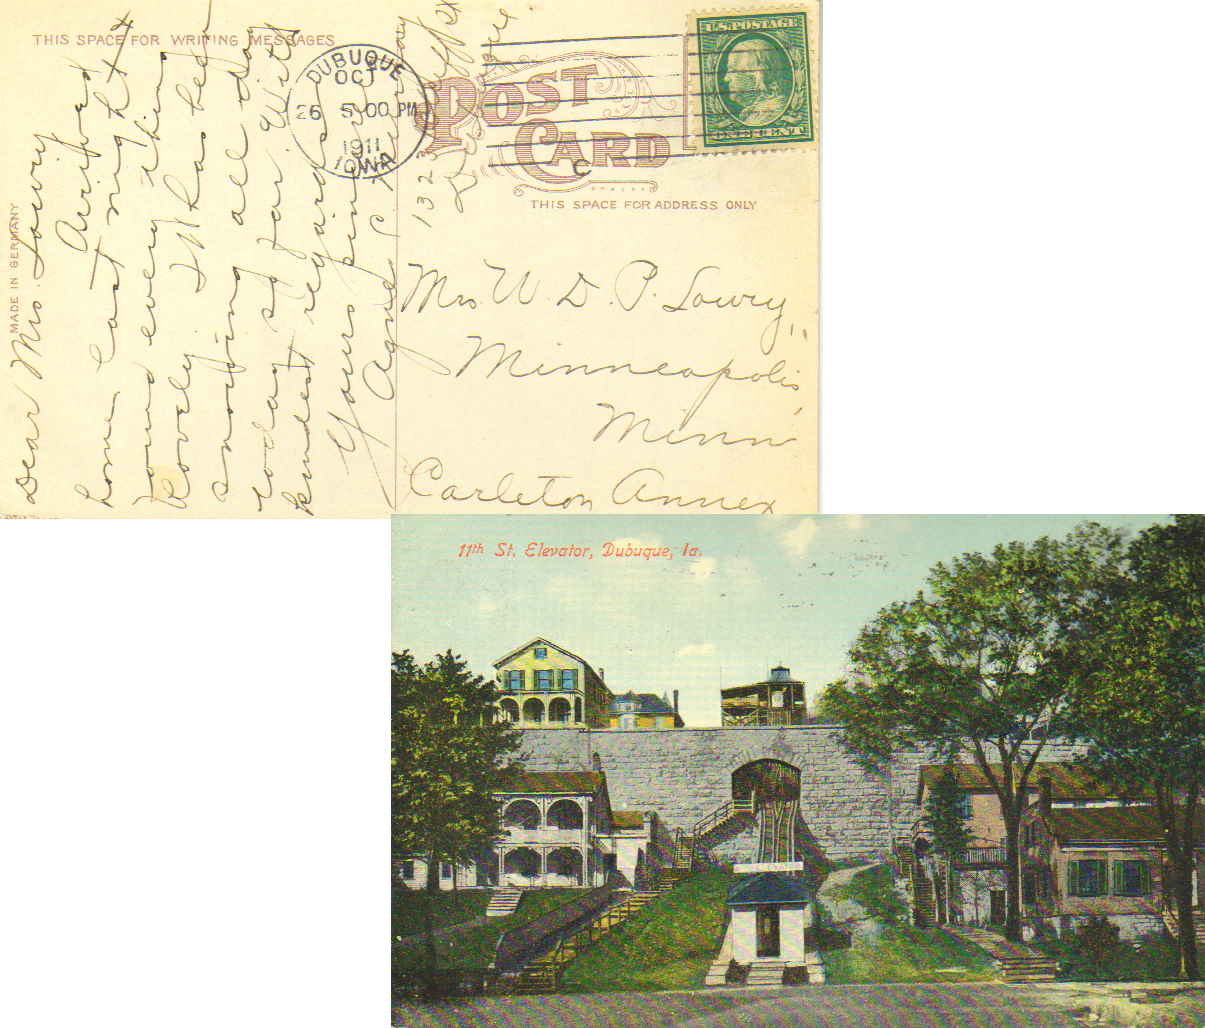 THIS SPACE FOR WRITING MESSAGES
MADE IN GERMANY
Dear Mrs. Lowry
Arrived
home last night &
found everything
lovely. It has been
snowing all day
today so far. With
kindest regards
Yours sincerely
Agnes
132
DUBUQUE
OCT
26 5 00 PM
1911
IOWA
U.S. POSTAGE
ONE CENT
POST
CARD
C
THIS SPACE FOR ADDRESS ONLY
Mrs. W. D. P. Lowry,
Minneapolis,
Minn
Carleton Annex
11th St. Elevator, Dubuque, Ia.